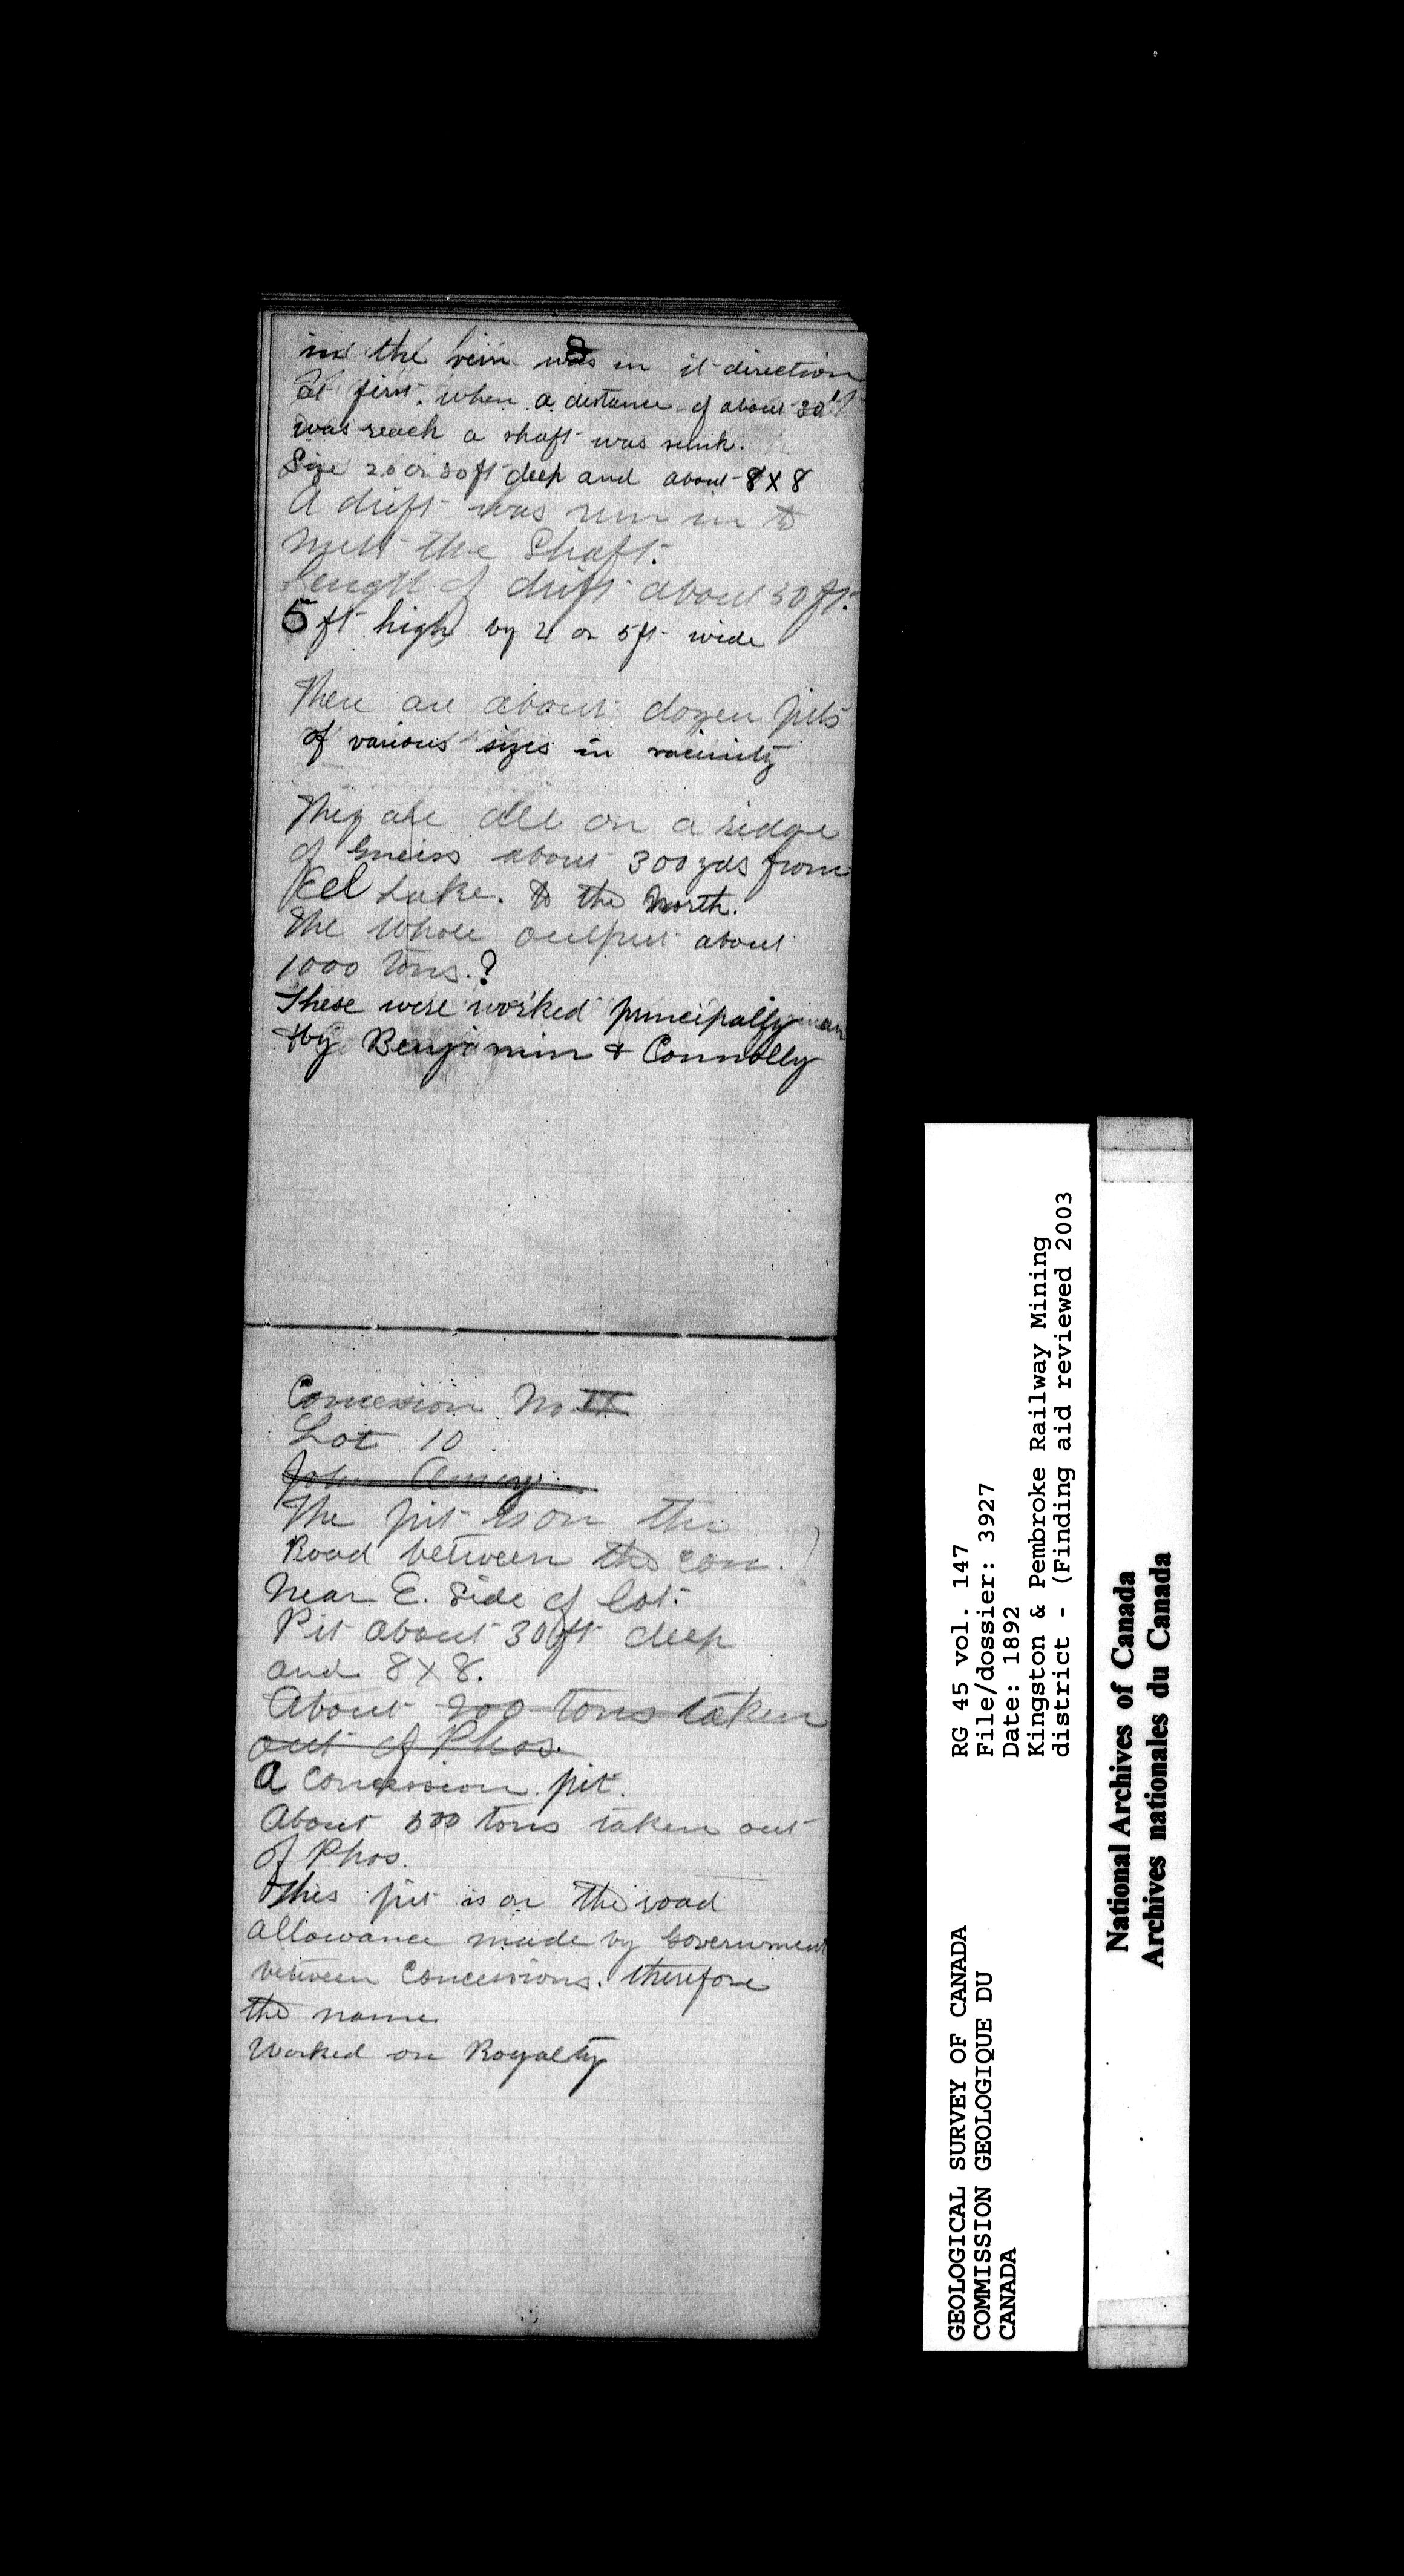 8
in the vein was in it direction
at first. when a distance of about 30'
was reach a shaft was sunk.
Size 20 or 30 ft deep and about 8 X 8
A drift was run in to
meet the Shaft.
Length of drift about 30 ft.
5 ft high by 4 or 5 ft wide
There are about dozen pits
of various sizes in vacinity
They are all on a ridge
of Gneiss about 300 yds from
Eel Lake. to the North.
The whole output about
1000 tons.?
These were worked principally
by Benjamin & Connolly
Concession No IX
Lot 10
John Amey
The pit is on the
Road between the con.
Near E. Side of lot.
Pit about 30 ft deep
and 8 X 8.
About 200 tons taken
out of Phos.
A concession pit.
About 500 tons taken out
of Phos.
This pit is on the road
allowance made by Government
between Concessions. therefore
the name
Worked on Royalty
GEOLOGICAL SURVEY OF CANADA
COMMISSION GEOLOGIQUE DU
CANADA
RG 45 vol. 147
File/dossier: 3927
Date: 1892
Kingston & Pembroke Railway Mining
district - (Finding aid reviewed 2003
National Archives of Canada
Archives nationales du Canada